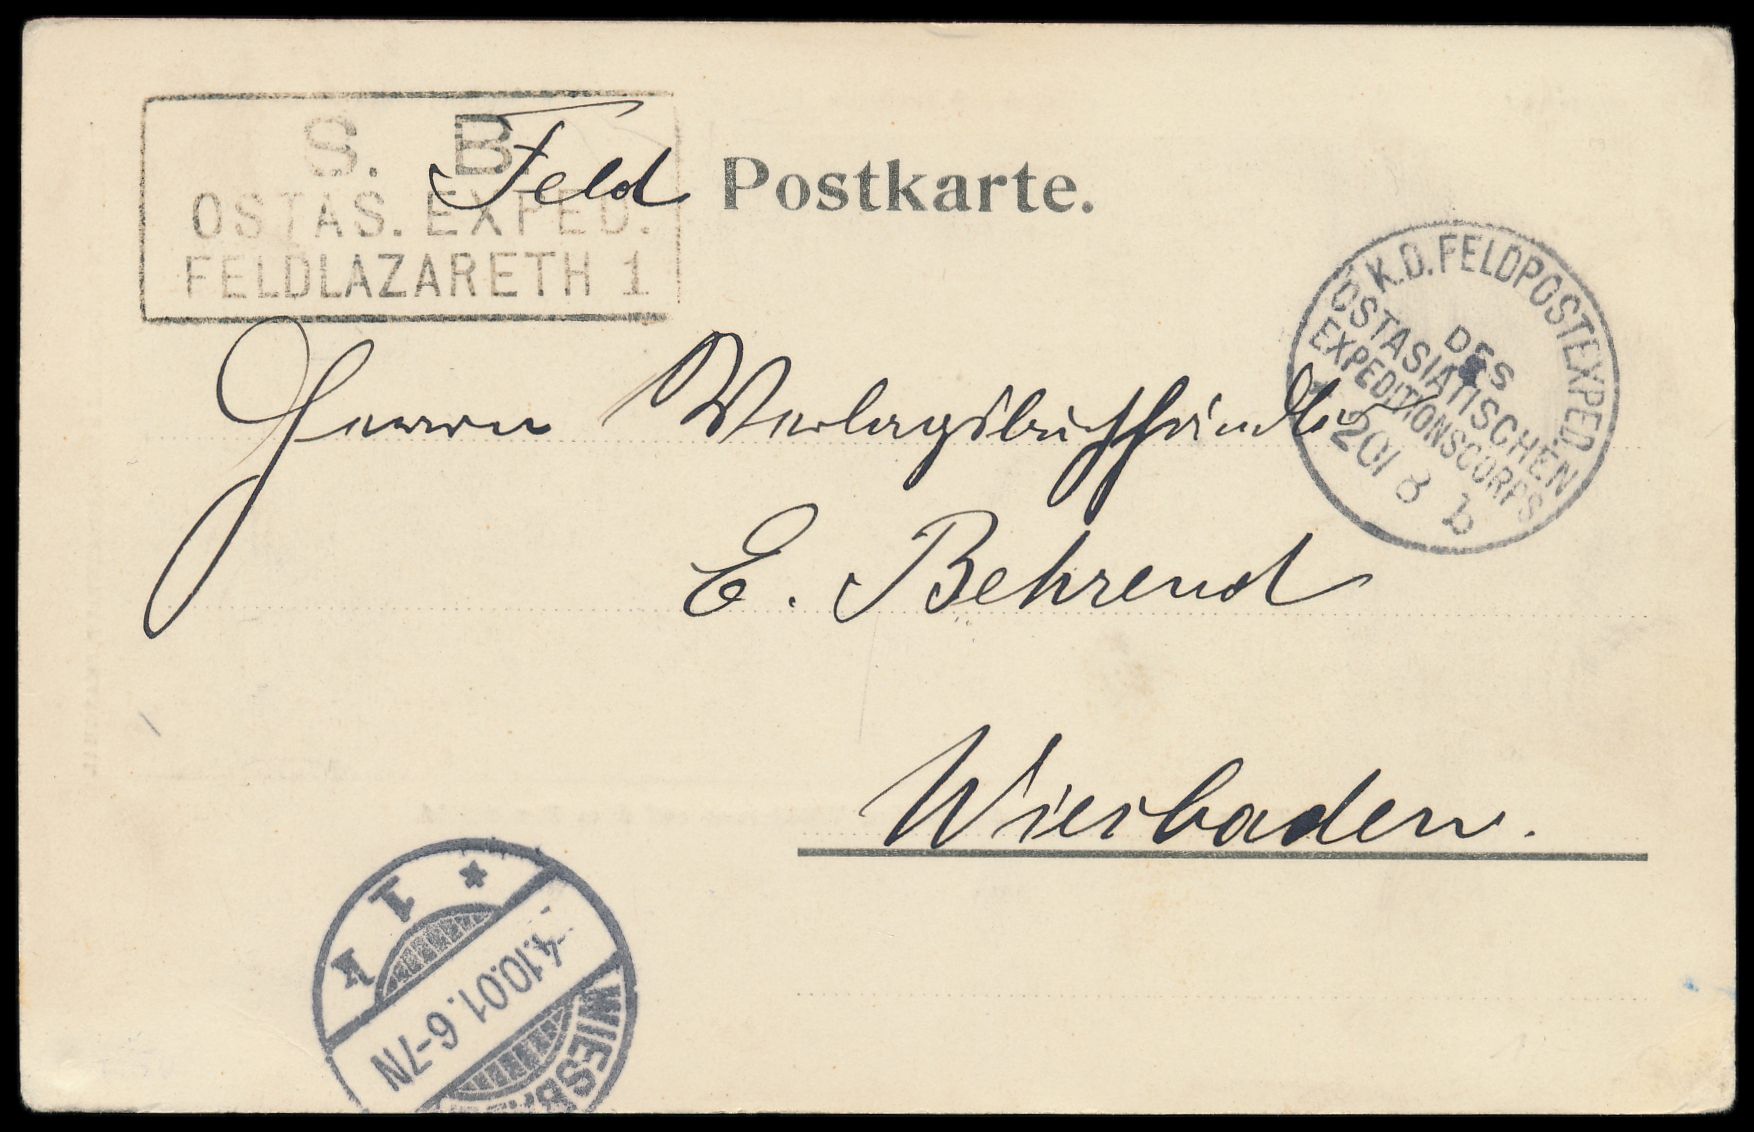 S. B.
OSTAS. EXPED.
FELDLAZARETH 1
Feld Postkarte.
K.D. FELDPOSTEXPED.
DES
OSTASIATISCHEN
EXPEDITIONSCORPS
20/8
b
Herrn Verlagsbuchhändler
E. Behrend
Wiesbaden.
* 1 k
4.10.01. 6-7N